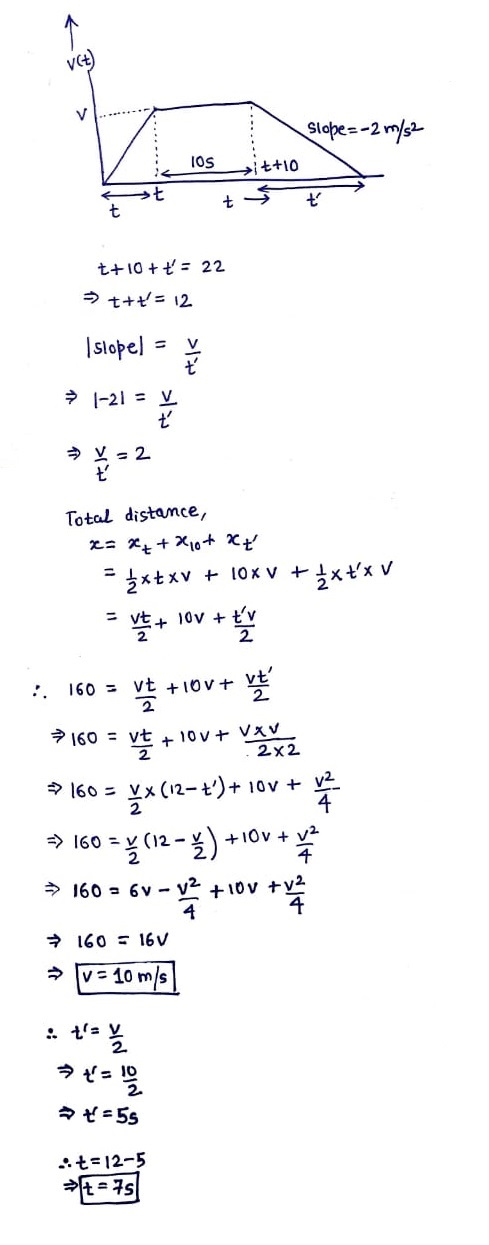 v(t)
v
slope=-2 m/s2
10s
t+10
t
t
t
t'
t+10+t'= 22
⇒ t+t'= 12
|slope| = v/t'
⇒ |-2| = v/t'
⇒ v/t' = 2
Total distance,
x= x_t + x_10 + x_t'
= 1/2 x t x v + 10 x v + 1/2 x t' x v
= vt/2 + 10v + t'v/2
∴ 160 = vt/2 + 10v + vt'/2
⇒ 160 = vt/2 + 10v + vxv/2x2
⇒ 160 = v/2 x (12-t') + 10v + v²/4
⇒ 160 = v/2 (12 - v/2) + 10v + v²/4
⇒ 160 = 6v - v²/4 + 10v + v²/4
⇒ 160 = 16v
⇒ v = 10 m/s
∴ t'= v/2
⇒ t'= 10/2
⇒ t'= 5s
∴ t = 12-5
⇒ t = 7s